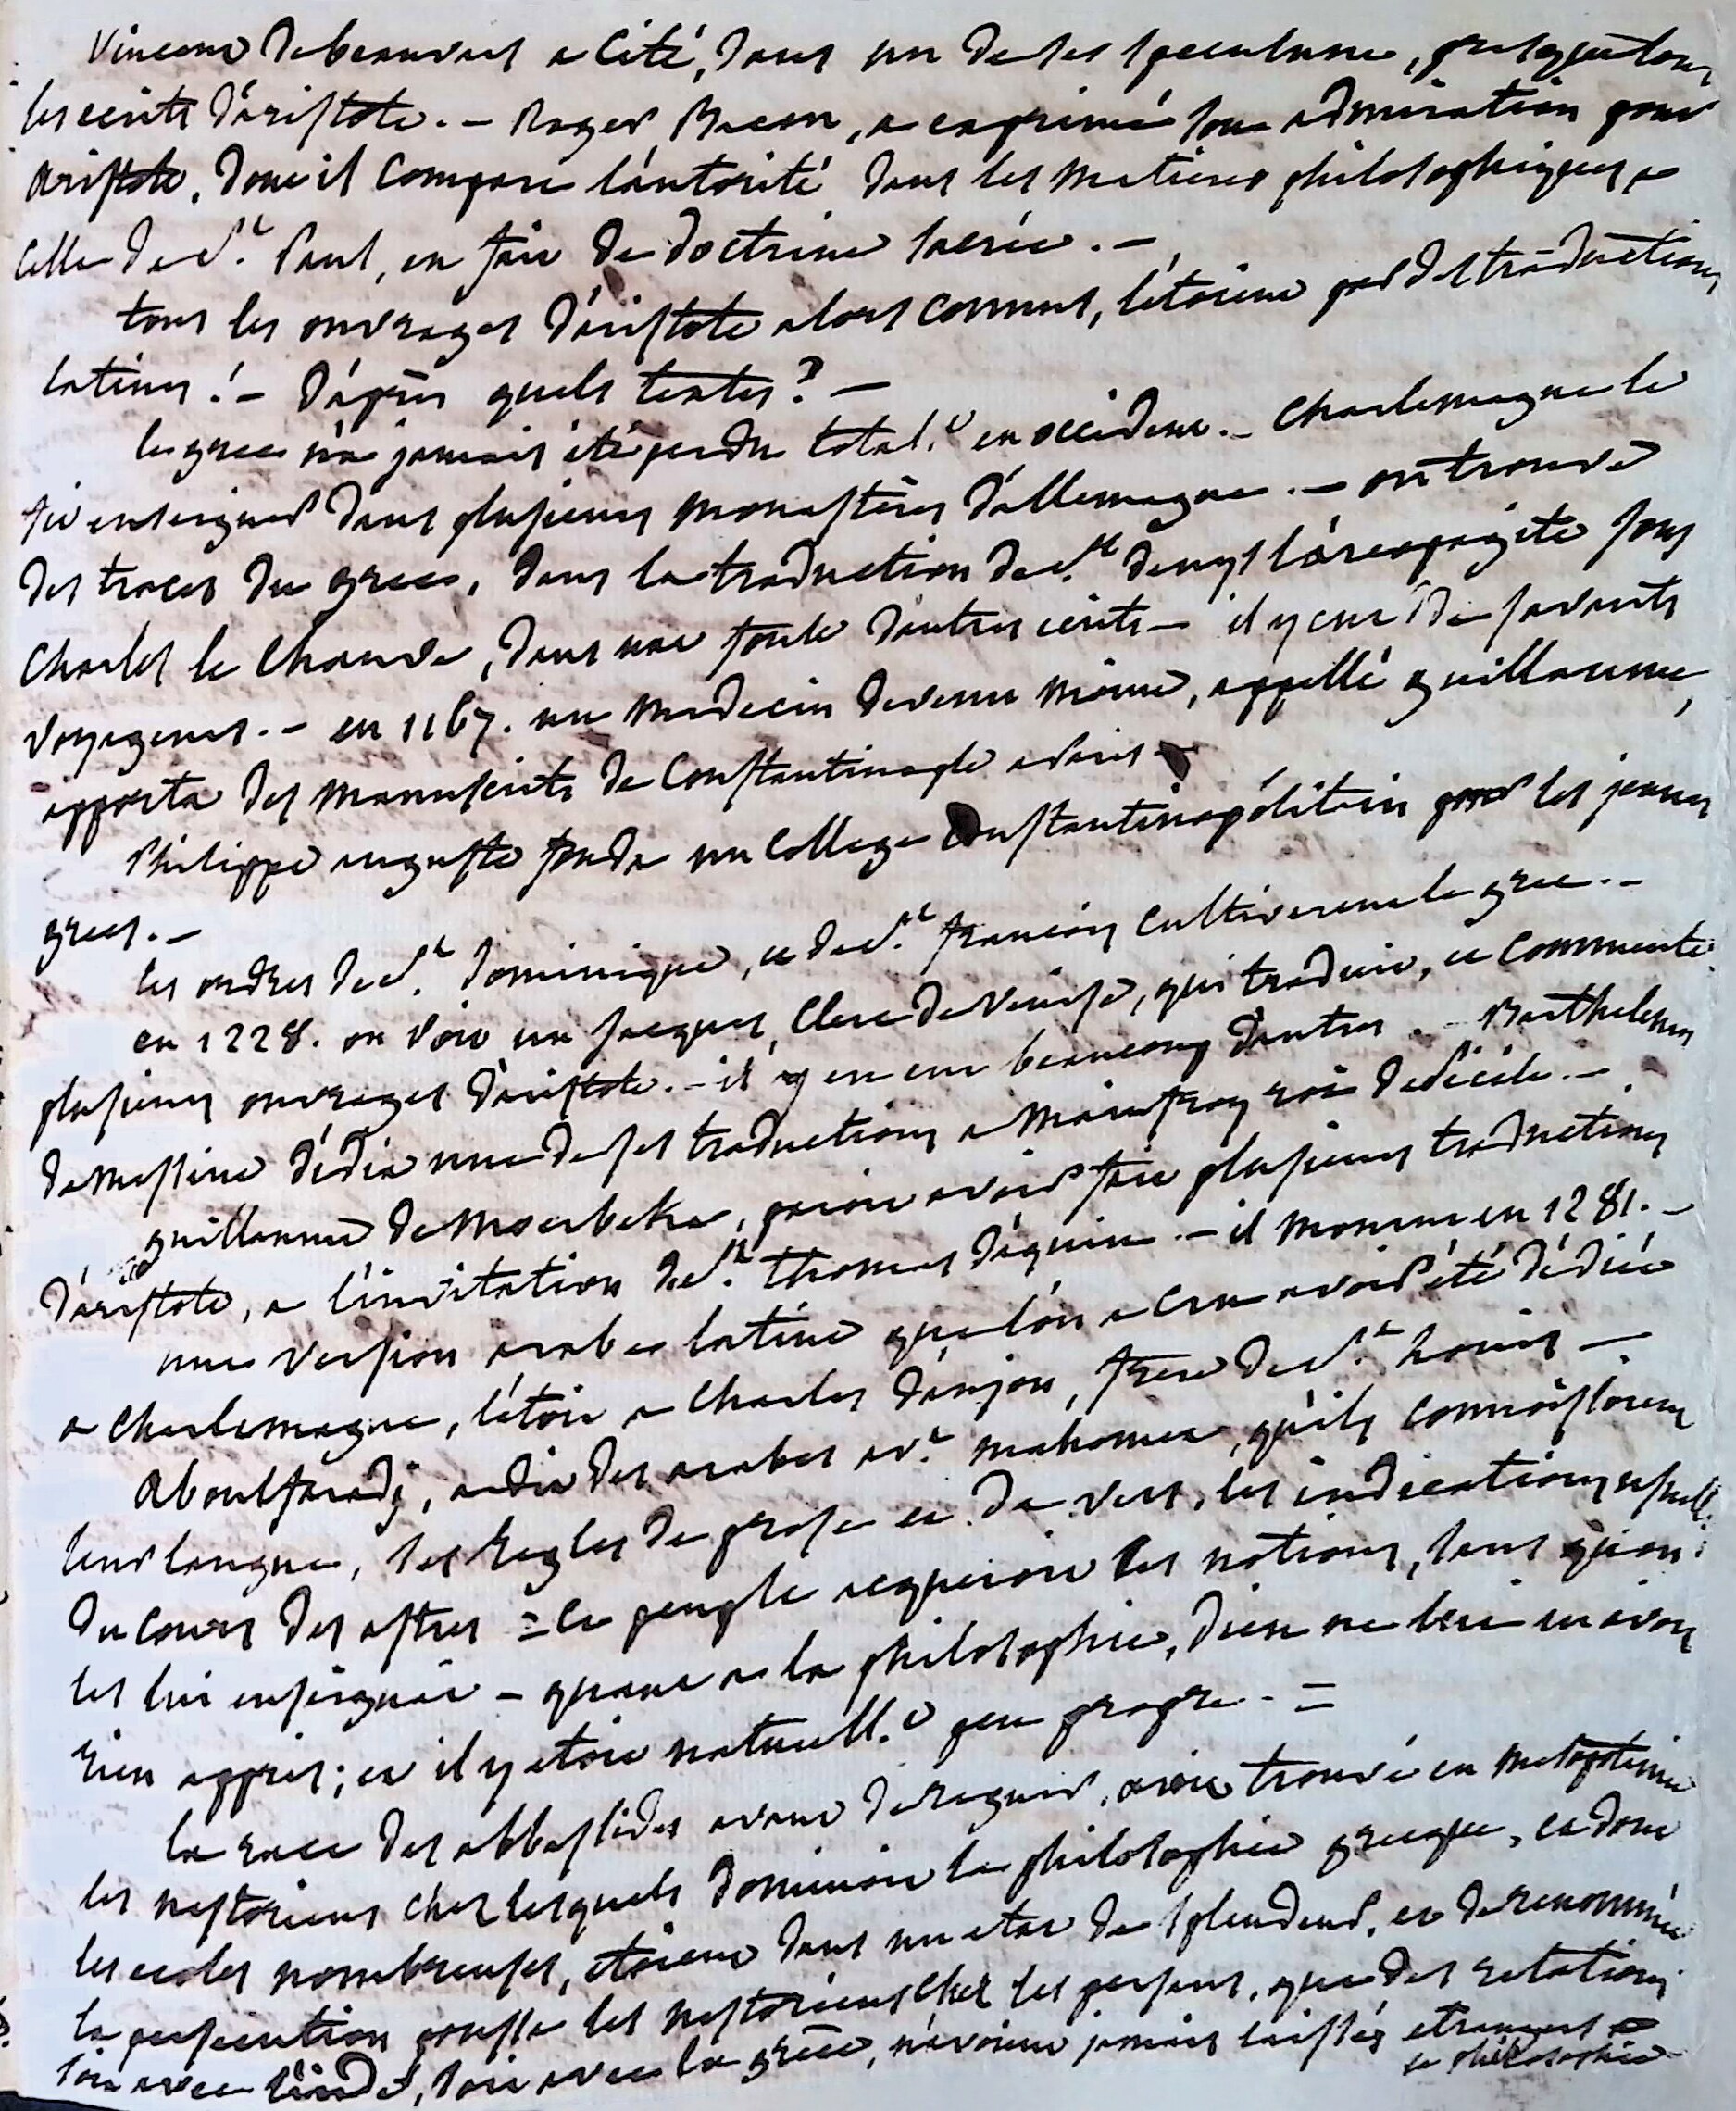 Vincent de beauvais a cité, dans un de ses speculum, presque tous
les ecrits d'aristote. – Roger Bacon, a exprimé son admiration pour
aristote, dont il compare l'autorité dans les matieres philosophiques, a
celle de St. Paul, en fait de doctrine sacrée. –
tous les ouvrages d'aristote alors connus, l'étoient par des traductions
latines! – d'après quels textes? –
le grec n'a jamais été perdu total.t en occident. – Charlemagne le
fit enseigner dans plusieurs monastères d'allemagne. – on trouve
des traces du grec, dans la traduction de St. denys l'areopagite sous
Charles le Chauve, dans une foule d'autres ecrits – il y eut de savants
voyageurs. – en 1167. un medecin devenu moine, appellé guillaume,
apporta des manuscrits de Constantinople a Paris –
Philippe auguste fonda un college Constantinopolitain pour les jeunes
grecs. –
les ordres de St. dominique, et de St. françois cultiverent le grec. –
en 1228. on voit un Jacques, Clerc de Venise, qui traduit, et commente
plusieurs ouvrages d'aristote. – il y en eut beaucoup d'autres. – Barthelemy
de Messine dédia une de ses traductions a Mainfroy roi de Sicile. –
guillaume de Moerbeka, paroit avoir fait plusieurs traductions
d'aristote, a l'invitation de St. thomas d'aquin. – il mourut en 1281. –
une version arabe latine que l'on a cru avoir été dédiée
a Charlemagne, l'étoit a Charles d'anjou, frere de St. Louis –
Aboulfaradj, a dit des arabes av.t mahomet, qu'ils connoissoient
leur langue, les regles de prose et de vers, les indications result.
du cours des astres = le peuple acqueroit ces notions, sans qu'on
les lui enseignât – quant a la philosophie, dieu ne lui en avoit
rien appris; et il y etoit naturell.t peu propre. – =
la race des abbassides avant de regner, avoit trouvé en mesopotamie
les nestoriens chez lesquels dominoit la philosophie grecque, et dont
les ecoles nombreuses, étoient dans un etat de splendeur, et de renommée
la persecution poussa les nestoriens chez les persans, que des relations
soit avec l'inde, soit avec la grèce, n'avoient jamais laissés etrangers a
la philosophie –